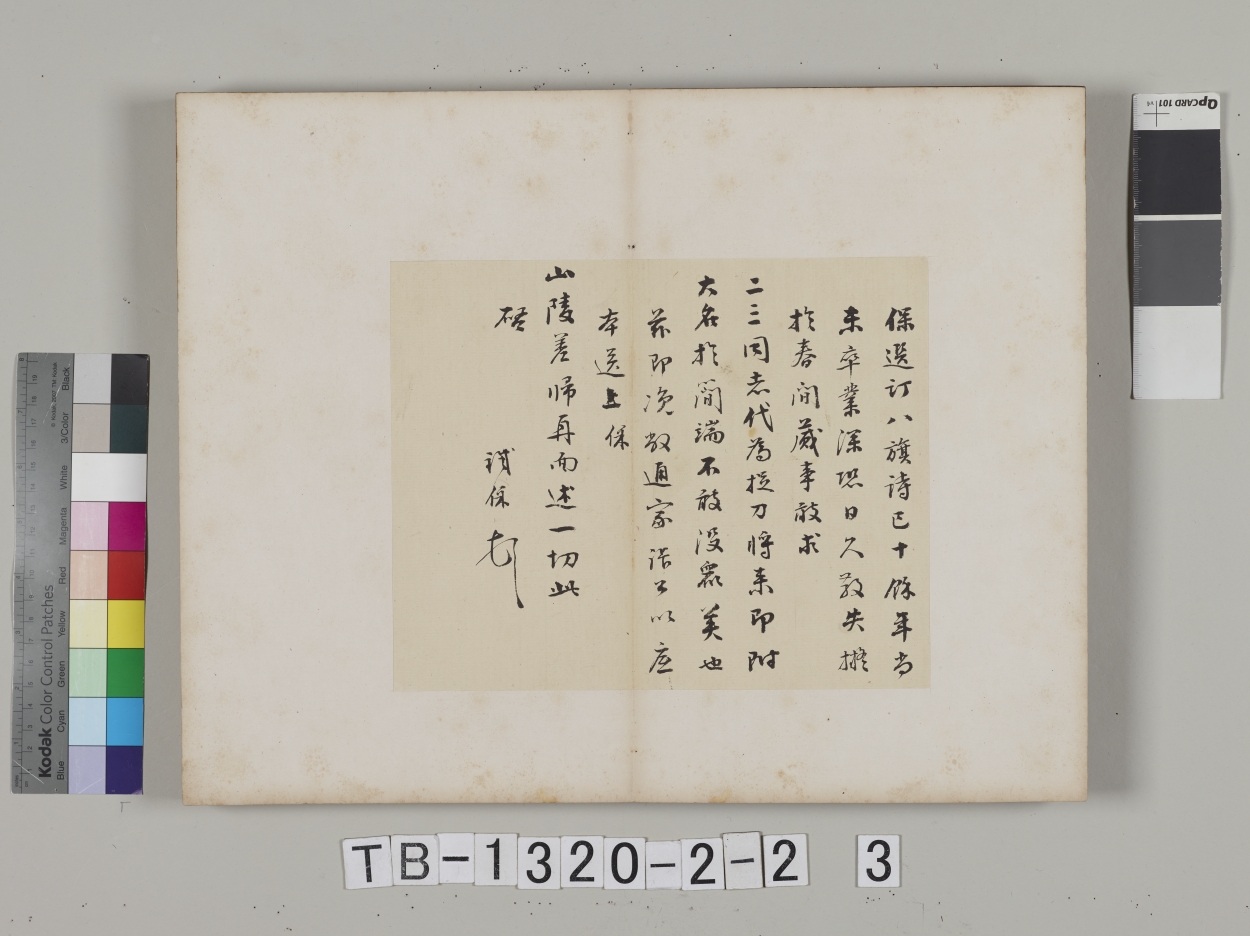 保選訂八旗詩已十餘年尚
未卒業深恐日久散失擬
於春間蕆事敢求
二三同志代為捉刀將來即附
大名於簡端不敢沒衆美也
茲即 敬通家 公以應
本送上保
山陵差帰再面述一切此
啓
鐵保
Kodak Color Control Patches
© Kodak, 2007 TM: Kodak
Blue
Cyan
Green
Yellow
Red
Magenta
White
3/Color
Black
QPCARD 101
v4
TB-1320-2-2 3